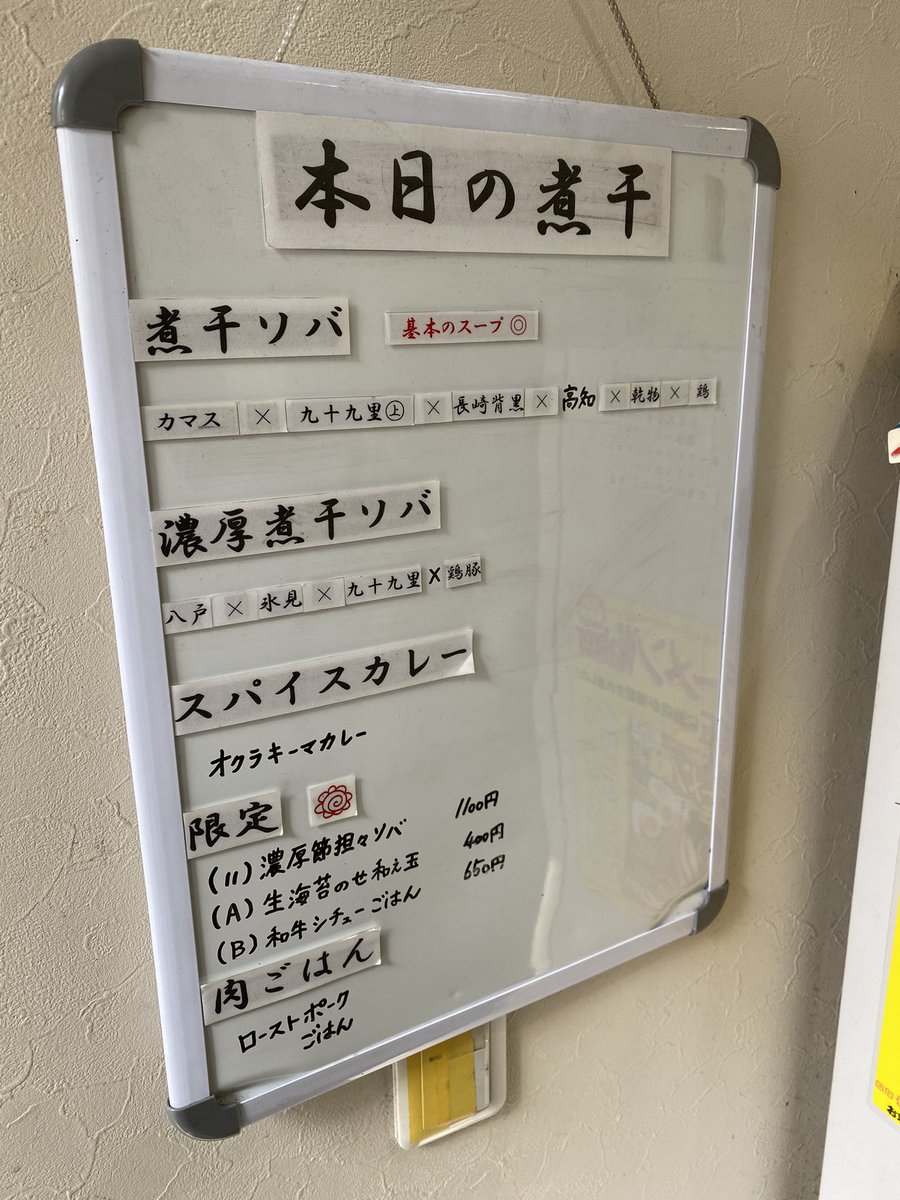 本日の煮干
煮干ソバ 基本のスープ◎
カマス × 九十九里㊤ × 長崎背黒 × 高知 × 乾物 × 鶏
濃厚煮干ソバ
八戸 × 氷見 × 九十九里 × 鶏豚
スパイスカレー
オクラキーマカレー
限定
(11) 濃厚節担々ソバ 1100円
(A) 生海苔のせ和え玉 400円
(B) 和牛シチューごはん 650円
肉ごはん
ローストポーク
ごはん